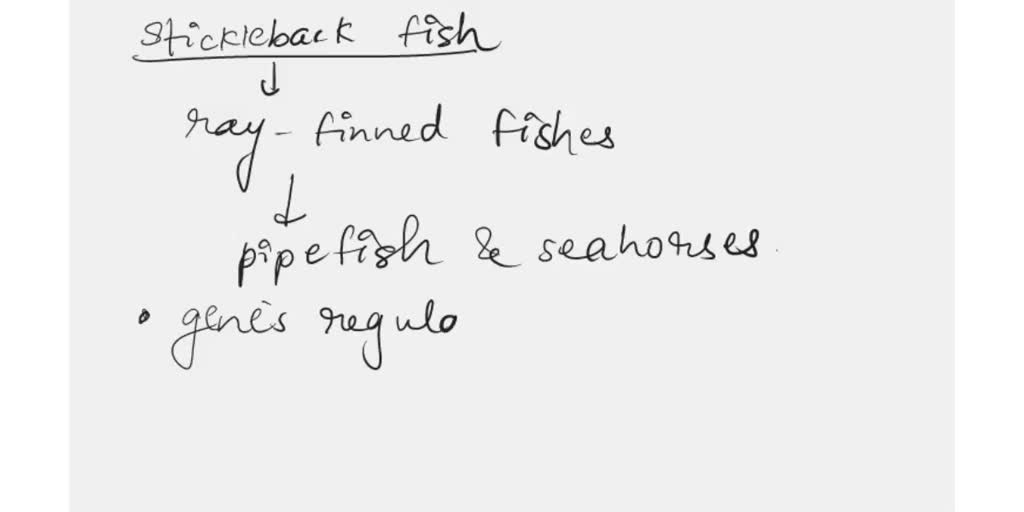 stickleback fish
↓
ray - finned fishes
↓
pipefish & seahorses.
• genes regulo